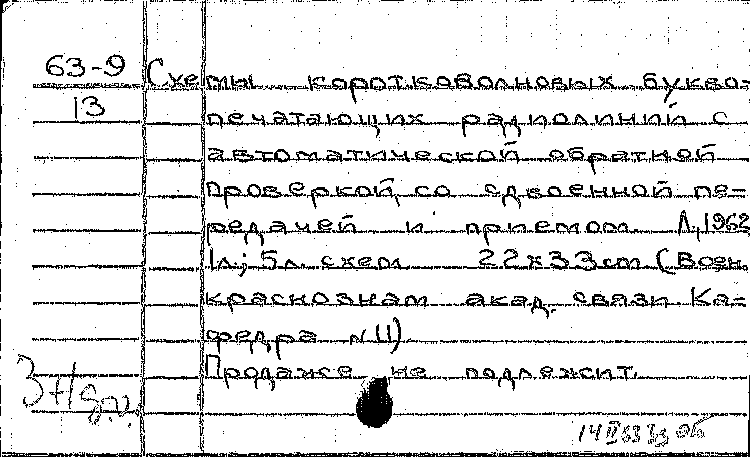 63-9 Схемы коротковолновых букво-
13 печатающих радиолиний с
автоматической обратной
проверкой, со сдвоенной пе-
редачей и приемом. Л, 1962
1л.; 5л. схем 22x33cm (Воен.
краснознам акад. связи Ка-
федра N 11).
Продаже не подлежит.
14 II 63